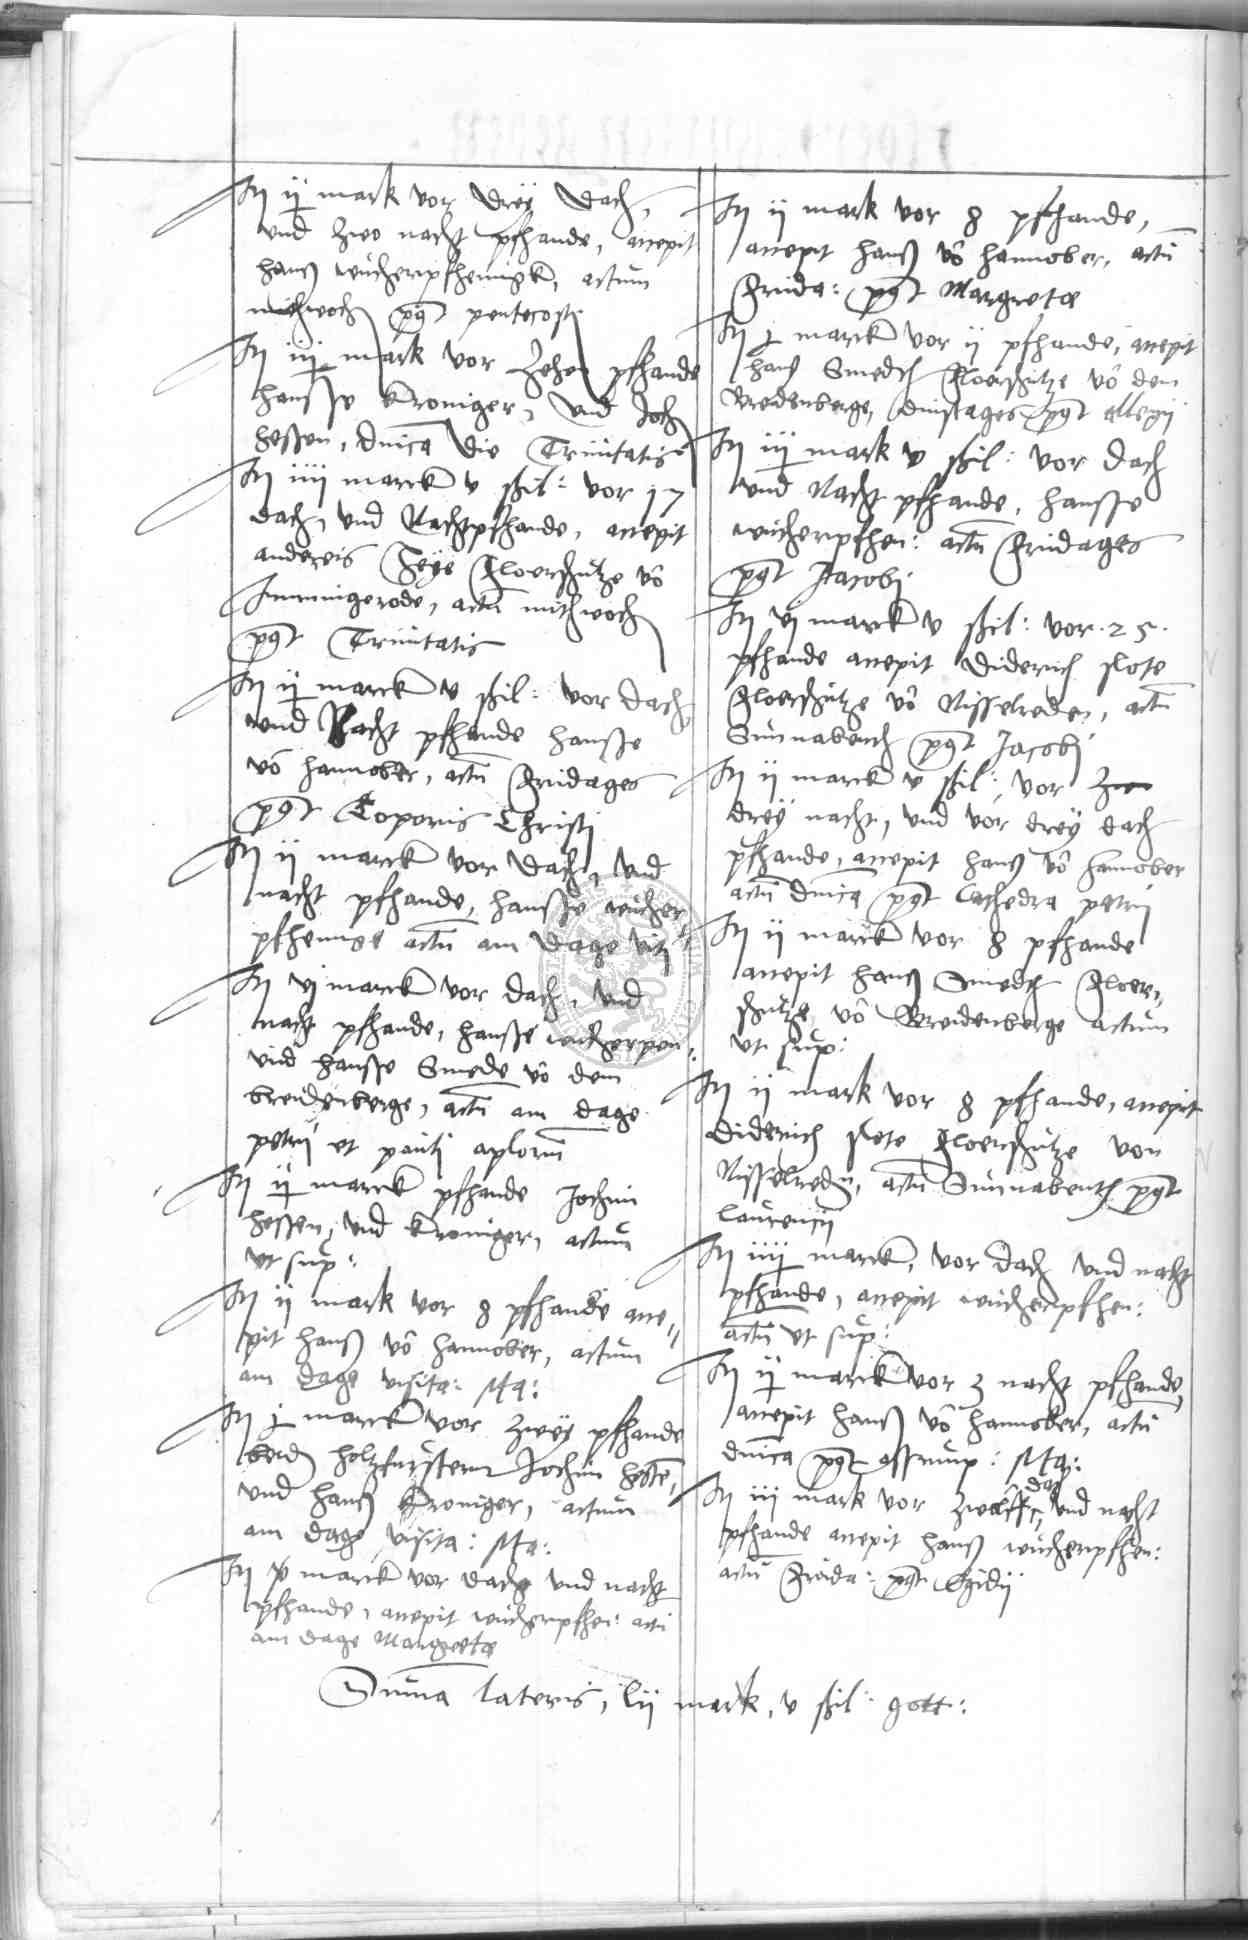 Itm ij mark vor dreÿ dach,
und zwo nacht pfhande, accepit
hanß wücherpfhennigk, actum
mithwoch pqt pentecosti
Itm iij mark vor zehen pfhande
hansse kroniger, und Joch:
hessen, dnica die Trinitatis
Itm iiij marck v ßil: vor 17
dach, und Nachtpfhande, accepit
andereis Floerschütze vo
Immingerode, actu mithwoch
pqt Trinitatis
Itm ij marck v ßil: vor dach
und Nacht pfhande hansse
vo hannober, actu Fridages
pqt Coporis Christi
Itm ij marck vor dach, und
nacht pfhande, hansse wücher
pfhennge actu am dage viti
Itm vj marck vor dach, und
nacht pfhande, hansse wücherpen:
und hansse Smede vo dem
breidenberge, actu am dage
petri et pauli aplorum
Itm ij marck pfhande Jochim
hessen, und kroniger, actum
ut sup:
Itm ij mark vor 8 pfhande acce
pit hanß vo hannober, actum
am dage visita: Ma:
Itm j marck vor zweÿ pfhande
beid holtzfürstern Jochim hessen,
und hanß kroniger, actum
am dage visita: Ma:
Itm marck vor dach und nacht
pfhande, accepit wücherpfhen: actu
am dage Margretæ
Itm ij mark vor 8 pfhande,
accepit hanß vo hannober, actu
Frida: pqt Margretæ
Itm j marck vor ij pfhande, accepit
hanß Smedt Floerschütze vo dem
Breidenberge, dinstages pqt
Itm iij mark v ßil: vor dach
und Nacht pfhande, hansse
wücherpfhen: actu Fridages
pqt Jacobj
Itm vj marck v ßil: vor .25.
pfhande accepit Diderich slote
Floerschütze vo Nisselreden, actu
Sünnabent pqt Jacobj
Itm ij marck v ßil: vor
dreÿ nacht, und vor dreÿ dach
pfhande, accepit hanß vo hannober
actu dnica pqt Cathedra petri
Itm ij marck vor 8 pfhande
accepit hanß Smedt Floer
schütze vo Breidenberge actum
ut sup:
Itm ij mark vor 8 pfhande, accepit
Diderich slote Floerschütze von
Nisselreden, actu Sünnabent pqt
Laurencij
Itm iiij marck, vor dach und nacht
pfhande, accepit wücherpfhen:
actu ut sup:
Itm ij marck vor 3 nacht pfhande,
accepit hanß vo hannober, actu
dnica pqt assump: Ma:
Itm iij mark vor zwelff dag und nacht
pfhande accepit hanß wücherpfhen:
actu Frida: pqt Egidij
Suma lateris, lij mark, v ßil: gott: